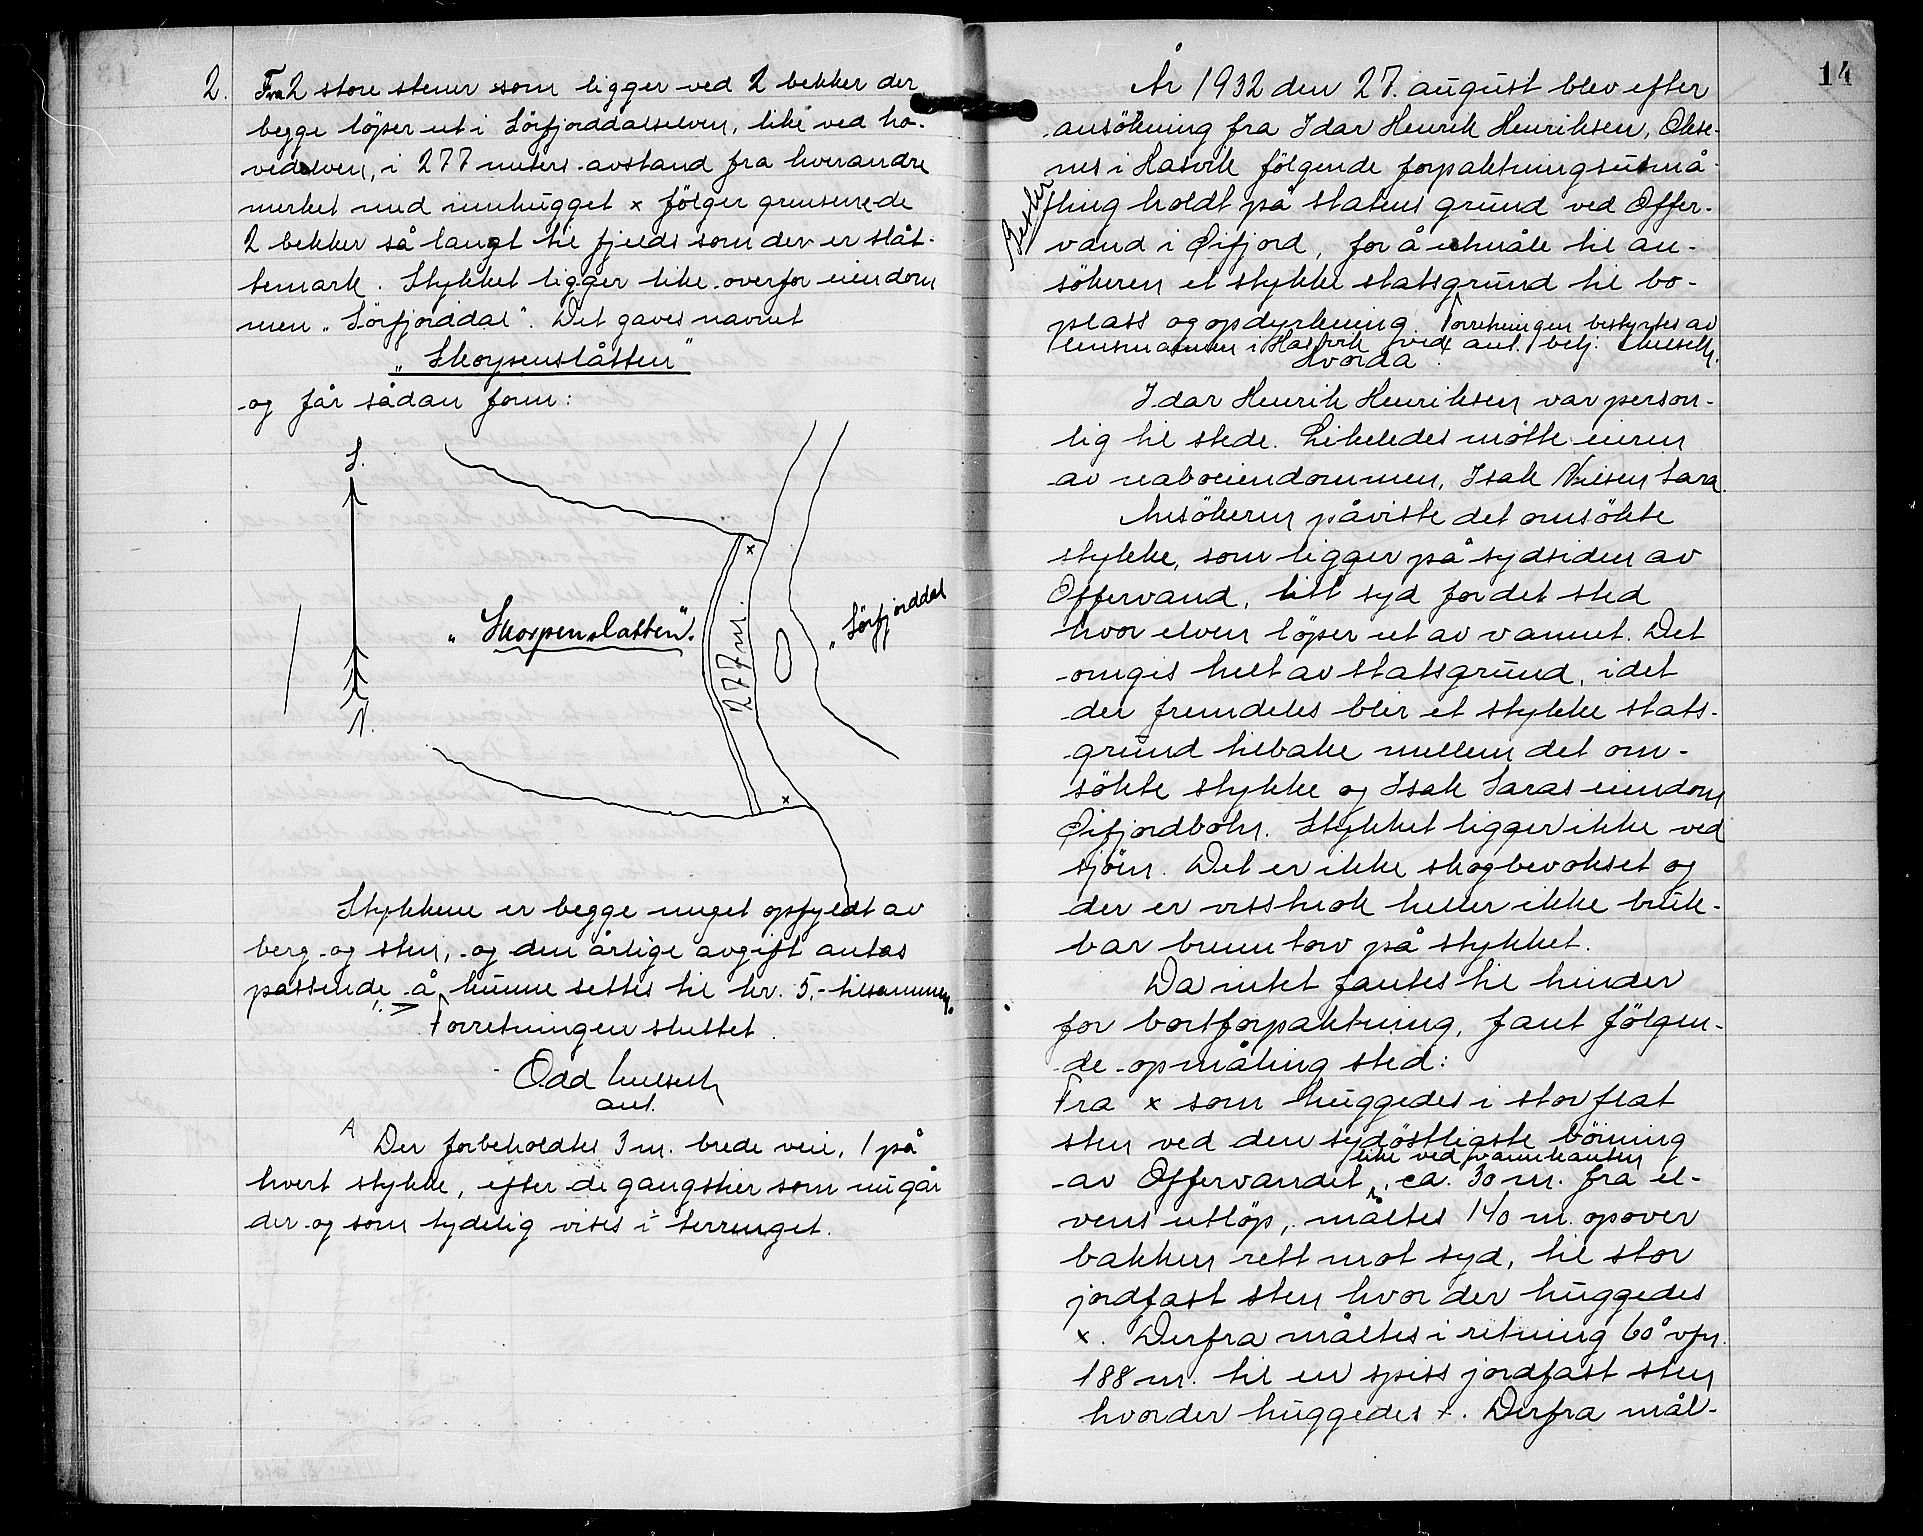 2. Fra 2 store stener som ligger ved 2 bekker der
begge löper ut i Sörfjorddalselven, like ved ho-
vedelven, i 277 meters avstand fra hverandre
merket med innhugget x følger grensene de
2 bekker så langt til fjelds som der er slåt-
temark. Stykket ligger like overfor eiendom
men „Sörfjorddal". Det gaves navnet
„Skorpenslåtten"
og får sådan form:
S.
x
„Skorpenslåtten".
277 m.
„Sörfjorddal
N.
x
Stykkene er begge meget opfyldt av
berg og sten, og den årlige avgift antas
passende å kunne settes til kr. 5,- tilsammen.
Forretningen sluttet.
Odd
ant.
A Der forbeholdtes 3 m. brede veie, 1 på
hvert stykke, efter de gangstier som nu går
der og som tydelig vises i terrenget.
14
År 1932 den 27. august blev efter
ansökning fra Idar Henrik Henriksen, Okse-
nes i Hasvik fölgende forpaktningsutmå-
ling holdt på statens grund ved Offer-
vand i Öifjord, for å utmåle til an-
sökeren et stykke statsgrund til bo-
plass og opdyrkning. Forretningen bestyrtes av
lensmannen i Hasvik ved aut. betj.
Hvorda
Idar Henrik Henriksen var person-
lig til stede. Likeledes mötte eieren
av naboeiendommen, Isak Nilsen Sara.
Ansökeren påviste det omsökte
stykke, som ligger på sydsiden av
Offervand, litt syd for det sted
hvor elven löper ut av vannet. Det
omgis helt av statsgrund, idet
der fremdeles blir et stykke stats-
grund tilbake mellem det om-
sökte stykke og Isak Saras eiendom
Öifjordbotn. Stykket ligger ikke ved
sjöen. Det er ikke skogbevokset og
der er visstnok heller ikke bruk-
bar brenntorv på stykket.
Da intet fantes til hinder
for bortforpaktning, fant fölgen-
de opmåling sted:
Fra x som huggedes i stor flat
sten ved den sydöstligste böining
like ved vannkanten
av Offervandet, ca. 30 m. fra el-
vens utlöp, måltes 140 m. opover
bakken rett mot syd, til stor
jordfast sten hvor der huggedes
x. Derfra måltes i retning 60° vfn.
188 m. til en spiss jordfast sten
hvor der huggedes x. Derfra mål-